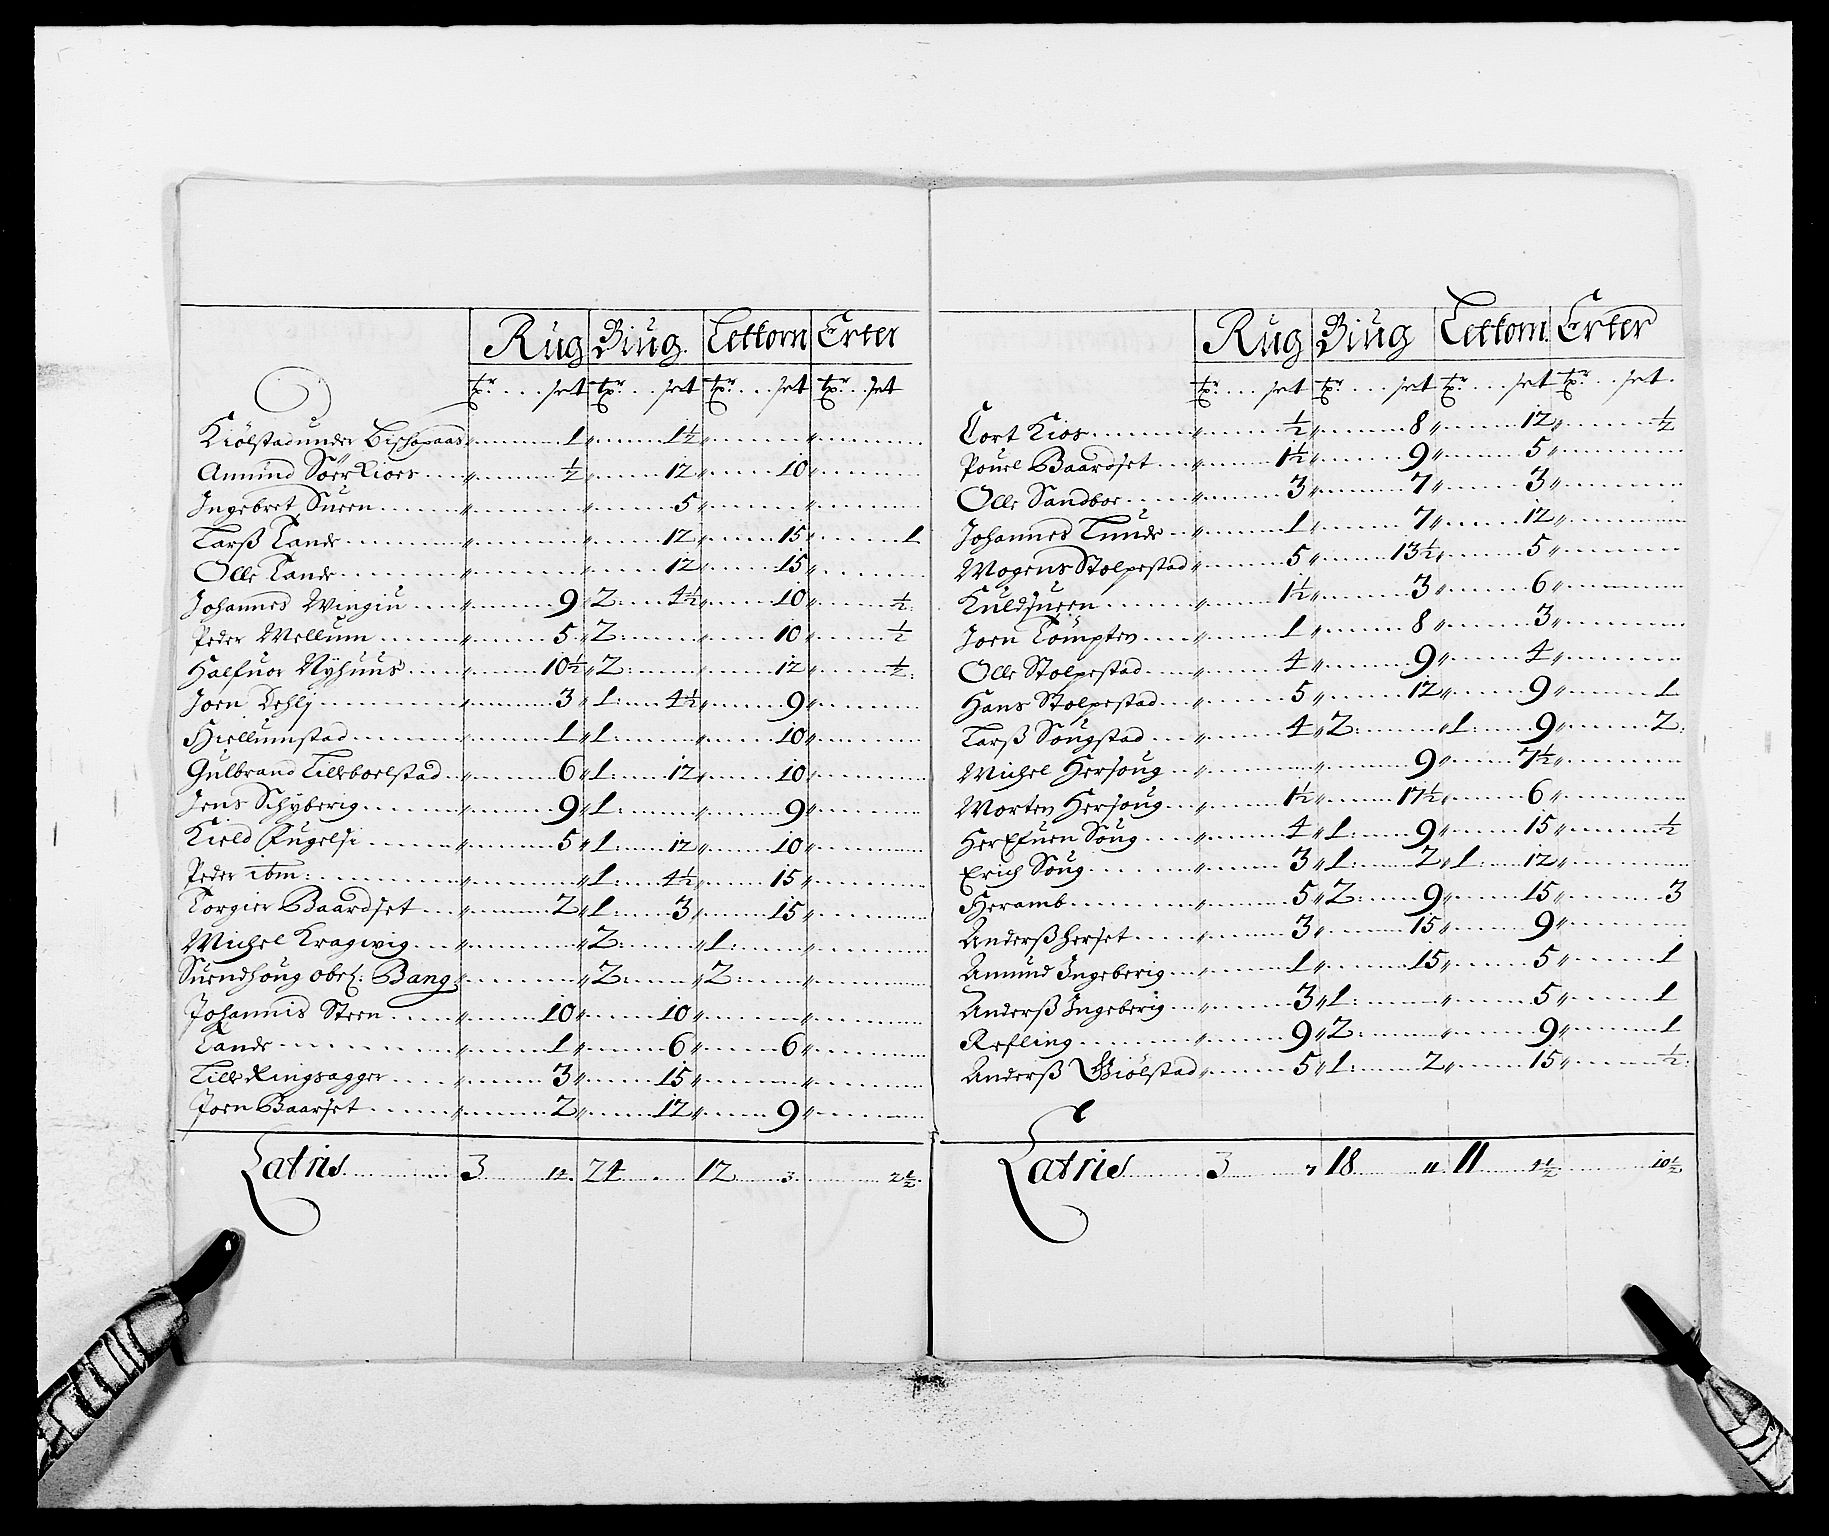 Rug Biug. Lettorn Erter
tr. set tr. set tr. set tr. set
Kiölstad under Bischopaas 1 1½
Amund SöerKioes ½ 12 10
Ingebret Sueen 5
Larß Lande 12 15 1
Olle Lande 12 15
Johannes Wingiu 9 2 4½ 10 ½
Peder Mellum 5 2 10 ½
Halfuor Nÿhuus 10½ 2 12 ½
Joen Lehly 3 1 4½ 9
Hiellumstad 1 1 10
Gulbrand Lilleboelstad 6 1 12 10
Jens Schÿberig 9 1 9
Kield Fugelse 5 1 12 10
Peder ibm: 1 4½ 15
Torgier Baardset 2 1 3 15
Michel Kragwig 2 1
Suendhoug obr: Bang 2 2
Johannis Steen 10 10
Lande 1 6 6
Lille Ringsagger 3 15
Joen Baarset 2 12 9
Latris 3 12 24 12 3 2½
Rug Biug Lettorn Erter
tr. set tr. set tr. set tr. set.
Tort Kios ½ 8 12 ½
Pouel Baardset 1½ 9 5
Olle Sandboe 3 7 3
Johannes Lunde 1 7 12
Mogens Stolpestad 5 13½ 5
Kuldsueen 1½ 3 6
Joen Tompten 1 8 3
Olle Stolpestad 4 9 4
Hans Stolpestad 5 12 9 1
Larß Sougstad 4 2 1 9 2
Michel Hersoug 9 7½
Morten Hersoug 1½ 17½ 6
Her Efuen Soug 4 1 9 15 ½
Erich Soug 3 1 2 1 12
Heramb 5 2 9 15 3
Anderß Herset 3 15 9
Amund Ingeberig 1 15 5 1
Anderß Ingeberig 3 1 5 1
Refling 9 2 9 1
Anderß Giölstad 5 1 2 15 ½
Latris 3 7 18 11 11 4½ 10½